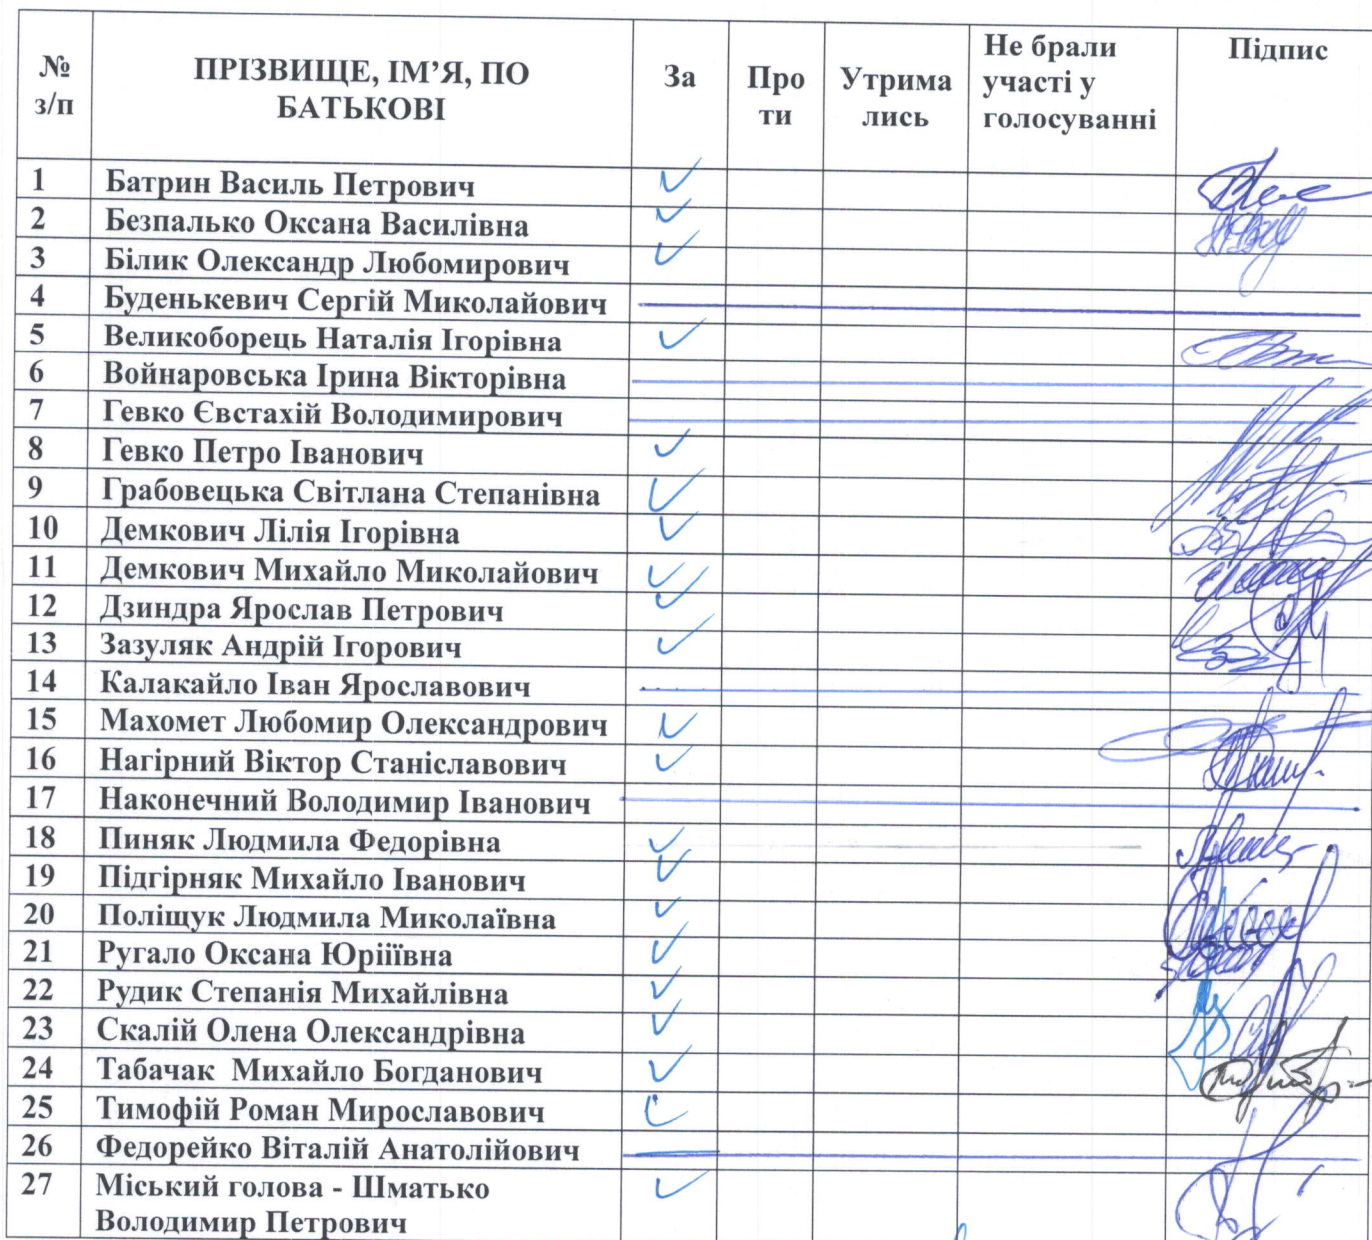 № з/п | ПРІЗВИЩЕ, ІМ’Я, ПО БАТЬКОВІ | За | Про ти | Утрима лись | Не брали участі у голосуванні | Підпис
1 Батрин Василь Петрович
2 Безпалько Оксана Василівна
3 Білик Олександр Любомирович
4 Буденькевич Сергій Миколайович
5 Великоборець Наталія Ігорівна
6 Войнаровська Ірина Вікторівна
7 Гевко Євстахій Володимирович
8 Гевко Петро Іванович
9 Грабовецька Світлана Степанівна
10 Демкович Лілія Ігорівна
11 Демкович Михайло Миколайович
12 Дзиндра Ярослав Петрович
13 Зазуляк Андрій Ігорович
14 Калакайло Іван Ярославович
15 Махомет Любомир Олександрович
16 Нагірний Віктор Станіславович
17 Наконечний Володимир Іванович
18 Пиняк Людмила Федорівна
19 Підгірняк Михайло Іванович
20 Поліщук Людмила Миколаївна
21 Ругало Оксана Юріїївна
22 Рудик Степанія Михайлівна
23 Скалій Олена Олександрівна
24 Табачак Михайло Богданович
25 Тимофій Роман Мирославович
26 Федорейко Віталій Анатолійович
27 Міський голова - Шматько
Володимир Петрович